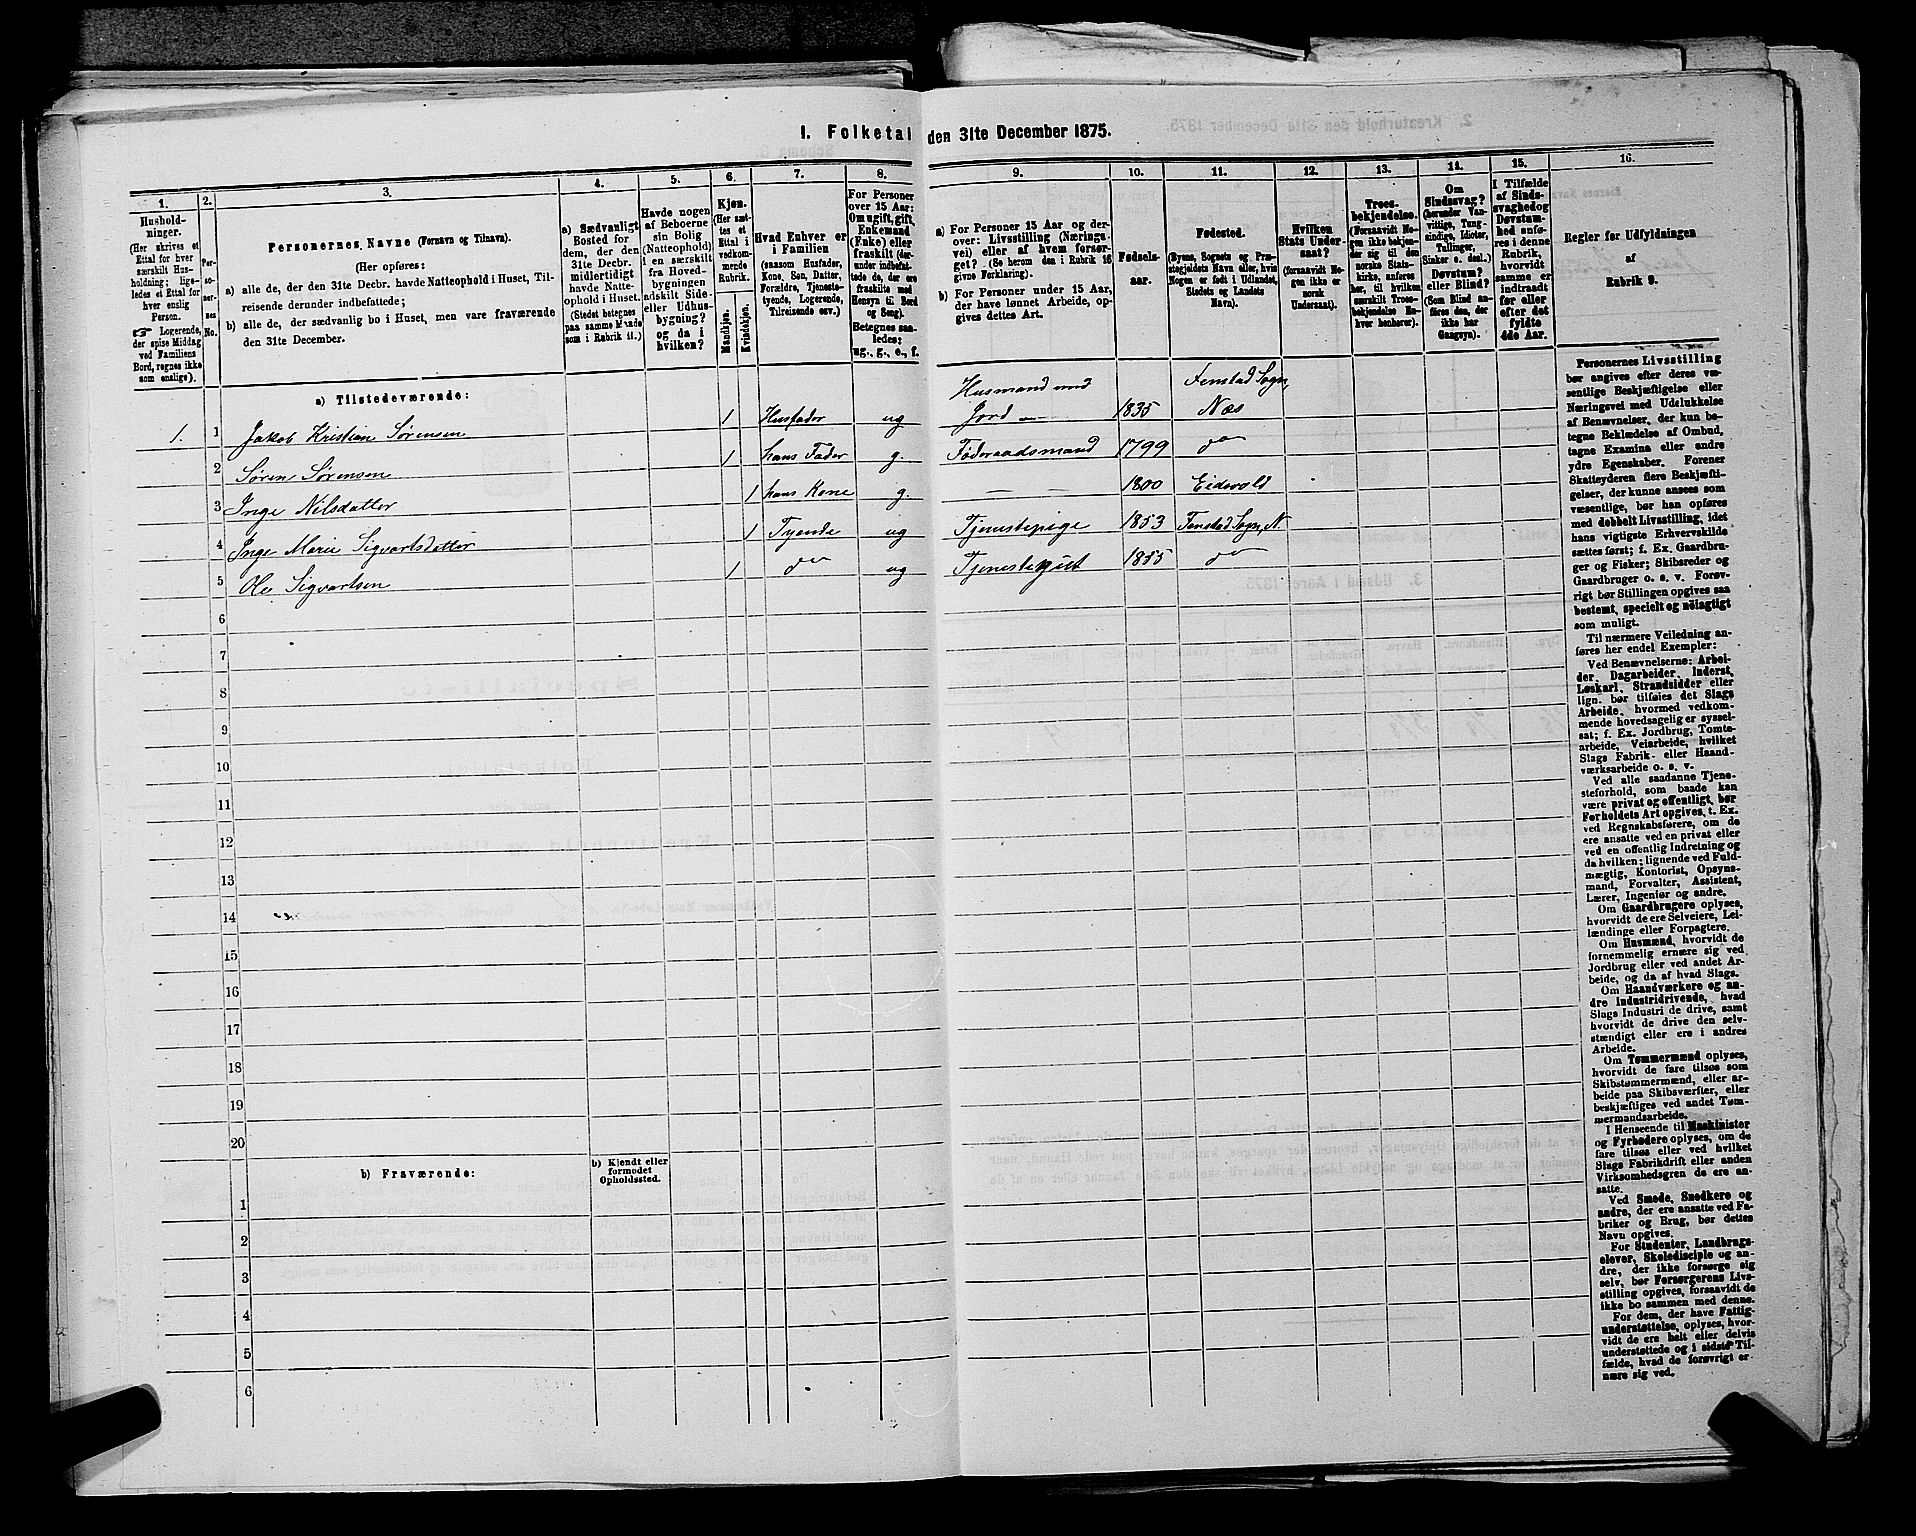 1. Folketal den 31te December 1875.
1. 2. 3. 4. 5. 6. 7. 8. 9. 10. 11. 12. 13. 14. 15. 16.
Hushold-
ninger.
(Her skrives et
Ettal for hver
særskilt Hus-
holdning; lige-
ledes et Ettal for
hver enslig
Person.
☞ Logerende,
der spise Middag
ved Familiens
Bord, regnes ikke
som enslige).
Per-
so-
ner-
nes
No.
Personernes Navne (Fornavn og Tilnavn).
(Her opføres:
a) alle de, der den 31te Decbr. havde Natteophold i Huset, Til-
reisende derunder indbefattede;
b) alle de, der sædvanlig bo i Huset, men vare fraværende
den 31te December.
a) Sædvanligt
Bosted for
dem, der den
31te Decbr.
midlertidigt
havde Natte-
ophold i Huset.
(Stedet betegnes
paa samme Maade
som i Rubrik 11.)
Havde nogen
af Beboerne
sin Bolig
(Natteophold)
i en særskilt
fra Hoved-
bygningen
adskilt Side-
eller Udhus-
bygning?
og da i
hvilken?
Kjøn.
(Her sæt-
tes et
Ettal i
vedkom-
mende
Rubrik.
Mandkjøn.
Kvindekjøn.
Hvad Enhver er
i Familien
(saasom Husfader,
Kone, Søn, Datter,
Forældre, Tjeneste-
tyende, Logerende,
Tilreisende osv.)
For Personer
over 15 Aar:
Om ugift, gift,
Enkemand
(Enke) eller
fraskilt (der-
under indbefat-
tede de, der ere
fraskilte med
Hensyn til Bord
og Seng).
Betegnes saa-
ledes:
ug., g., e., f.
a) For Personer 15 Aar og der-
over: Livsstilling (Nærings-
vei) eller af hvem forsør-
get? (Se herom den i Rubrik 16
givne Forklaring).
b) For Personer under 15 Aar,
der have lønnet Arbeide, op-
gives dettes Art.
Fødsels-
aar.
Fødested.
(Byens, Sognets og Præ-
stegjeldets Navn eller, hvis
Nogen er født i Udlandet,
Stedets og Landets
Navn).
Hvilken
Stats Under-
saat?
(forsaavidt No-
gen ikke er
norsk
Undersaat).
Troes-
bekjendelse.
(Forsaavidt No-
gen ikke bekjen-
der sig til den
norske Stats-
kirke, anføres
her, til hvilken
særskilt Troes-
bekjendelse En-
hver henhører).
Om
Sindssvag?
(herunder Van-
vittige, Tung-
sindige, Idioter,
Tullinger,
Sinker o. desl.)
Døvstum?
eller Blind?
(Som Blind an-
føres den, der
ikke har
Gangsyn).
I Tilfælde
af Sinds-
svaghed og
Døvstum-
hed anfø-
res i denne
Rubrik,
hvorvidt
samme er
indtraadt
før eller
efter det
fyldte
4de Aar.
Regler for Udfyldningen
af
Rubrik 9.
a) Tilstedeværende:
1. 1 Jakob Kristian Sørensen 1 Husfader ug Husmand med Jord 1835 Fenstad Sogn, Næs
2 Søren Sørensen 1 hans Fader g. Føderaadsmand 1799 do
3 Inge Nilsdatter 1 hans Kone g. — — 1800 Eidsvold
4 Inge Marie Sigvartsdatter 1 Tyende ug Tjenestepige 1853 Fenstad Sogn, N.
5 Ole Sigvartsen 1 do ug Tjenestegut 1855 do
6
7
8
9
10
11
12
13
14
15
16
17
18
19
20
b) Fraværende:
b) Kjendt eller
formodet
Opholdssted.
1
2
3
4
5
6
Personernes Livsstilling
bør angives efter deres væ-
sentlige Beskjæftigelse eller
Næringsvei med Udelukkelse
af Benævnelser, der kun be-
tegne Beklædelse af Ombud,
tagne Examina eller andre
ydre Egenskaber. Forener
Skatteyderen flere Beskjæfti-
gelser, der kunne ansees som
væsentlige, bør han opføres
med dobbelt Livsstilling, idet
hans vigtigste Erhvervskilde
sættes først; f. Ex. Gaardbru-
ger og Fisker; Skibsreder og
Gaardbruger o. s. v. Forøv-
rigt bør Stillingen opgives saa
bestemt, specielt og nøiagtigt
som muligt.
Til nærmere Veiledning an-
føres her endel Exempler:
Ved Benævnelserne: Arbei-
der, Dagarbeider, Inderst,
Løskarl, Strandsidder eller
lign. bør tilføies det Slags
Arbeide, hvormed vedkom-
mende hovedsagelig er syssel-
sat; f. Ex. Jordbrug, Tomte-
arbeide, Veiarbeide, hvilket
Slags Fabrik- eller Haand-
værksarbeide o. s. v.
Ved alle saadanne Tjene-
steforhold, som baade kan
være privat og offentligt, bør
Forholdets Art opgives, t. Ex.
ved Regnskabsførere, om de
ere ansatte ved en privat eller
ved en offentlig Indretning og
da hvilken; lignende ved Fuld-
mægtig, Kontorist, Opsyns-
mand, Forvalter, Assistent,
Lærer, Ingeniør og andre.
Om Gaardbrugere oplyses,
hvorvidt de ere Selveiere, Lei-
lændinge eller Forpagtere.
Om Husmænd, hvorvidt de
fornemmelig ernære sig ved
Jordbrug eller ved andet Ar-
beide, og da af hvad Slags.
Om Haandværkere og an-
dre Industridrivende, hvad
Slags Industri de drive, samt
hvorvidt de drive den selv-
stændigt eller ere i andres
Arbeide.
Om Tømmermænd oplyses,
hvorvidt de fare tilsøs som
Skibstømmermænd, eller ar-
beide paa Skibsværfter, eller
beskjæftiges ved andet Tøm-
mermandsarbeide.
I Henseende til Maskinister
og Fyrbødere oplyses, om de
fare tilsøs eller ved hvilket
Slags Fabrikdrift eller anden
Virksomhedsgren de ere an-
satte.
Ved Smede, Snedkere og
andre, der ere ansatte ved Fa-
briker og Brug, bør dettes
Navn opgives.
For Studenter, Landbrugs-
elever, Skoledisciple og an-
dre, der ikke forsørge sig
selv, bør Forsørgerens Livs-
stilling opgives, forsaavidt de
ikke bo sammen med denne.
For dem, der have Fattig-
understøttelse, oplyses, hvor-
vidt de ere helt eller delvis
understøttede og i sidste Til-
fælde, hvad de forøvrigt er-
nære sig ved.